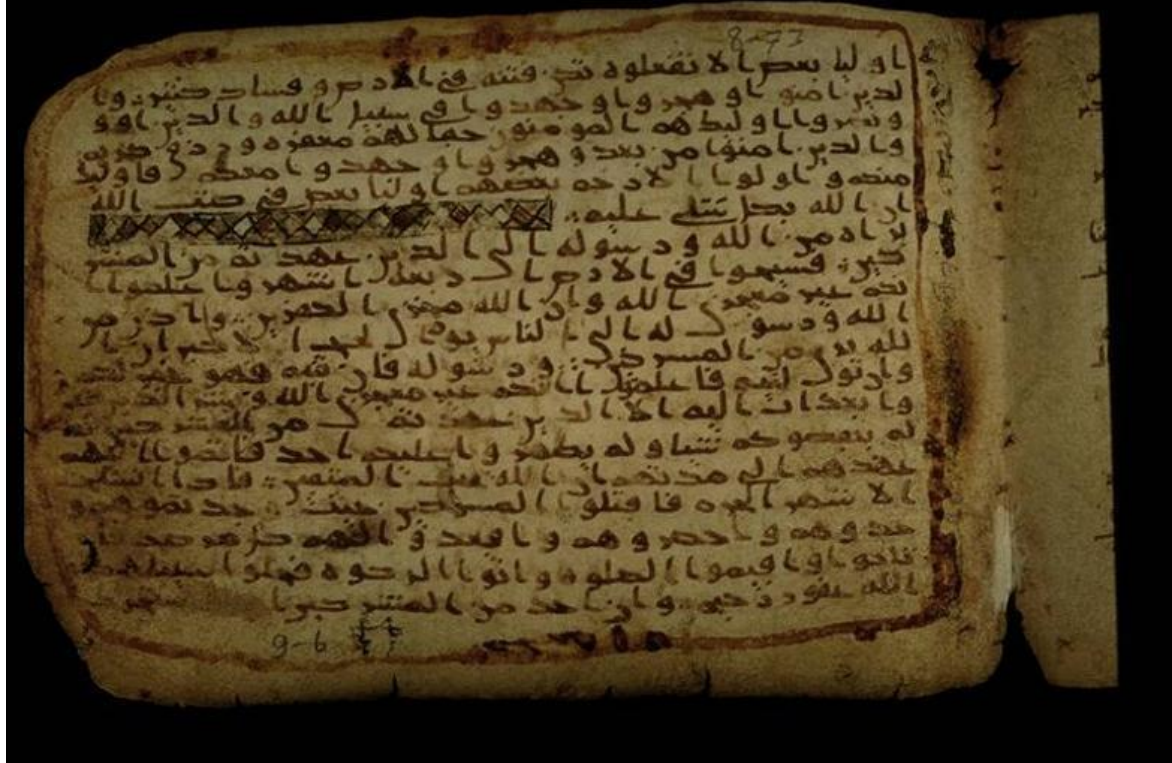 8-73
اوليا بعض الا تفعلوه تكن فتنه في الارض و فساد كبير وا
لذين امنوا و هجروا و جهدوا في سبيل الله والذين اوو
و نصروا اوليك هم المومنون حقا لهم مغفره و رزق كريم
والذين امنوا من بعد و هجروا و جهدوا معكم فاوليك
منكم و اولوا الارحم بعضهم اولى ببعض في كتب الله
ان الله بكل شي عليم
براه من الله و رسوله الى الذين عهدتم من المشر
كين فسيحوا في الارض اربعه اشهر واعلموا ا
نكم غير معجزي الله وان الله مخزي الكفرين واذن من
الله ورسوله الى الناس يوم الحج الاكبر ان ا
لله بري من المشركين ورسوله فان تبتم فهو خير لكم
وان توليتم فاعلموا انكم غير معجزي الله وبشر الذين كفر
وا بعذاب اليم الا الذين عهدتم من المشركين ثم
لم ينقصوكم شيا ولم يظهروا عليكم احد فاتموا اليهم
عهدهم الى مدتهم ان الله يحب المتقين فاذا انسلخ
الاشهر الحرم فاقتلوا المشركين حيث وجدتموهم و
خذوهم واحصروهم واقعدوا لهم كل مرصد فان
تابوا واقيموا الصلوه واتوا الزكوه فخلوا سبيلهم
الله غفور رحيم وان احد من المشركين
9-6